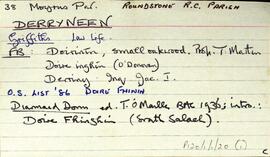 38 Moyrus Par. ROUNDSTONE R.C. PARISH
DERRYNEEN
Griffiths Law Life.
FB: Doirínín, small oakwood, Resp. T Martin
Doire inghin (O'Donovan)
Derriny Inq. Jac. I.
O.S. LIST '86 DOIRE FHINÍN
Diarmaid Donn ed. T Ó Malley BAC 1936; intro.:
Doire Fhinghin (South Salael).
P120/1/20 (i)
C